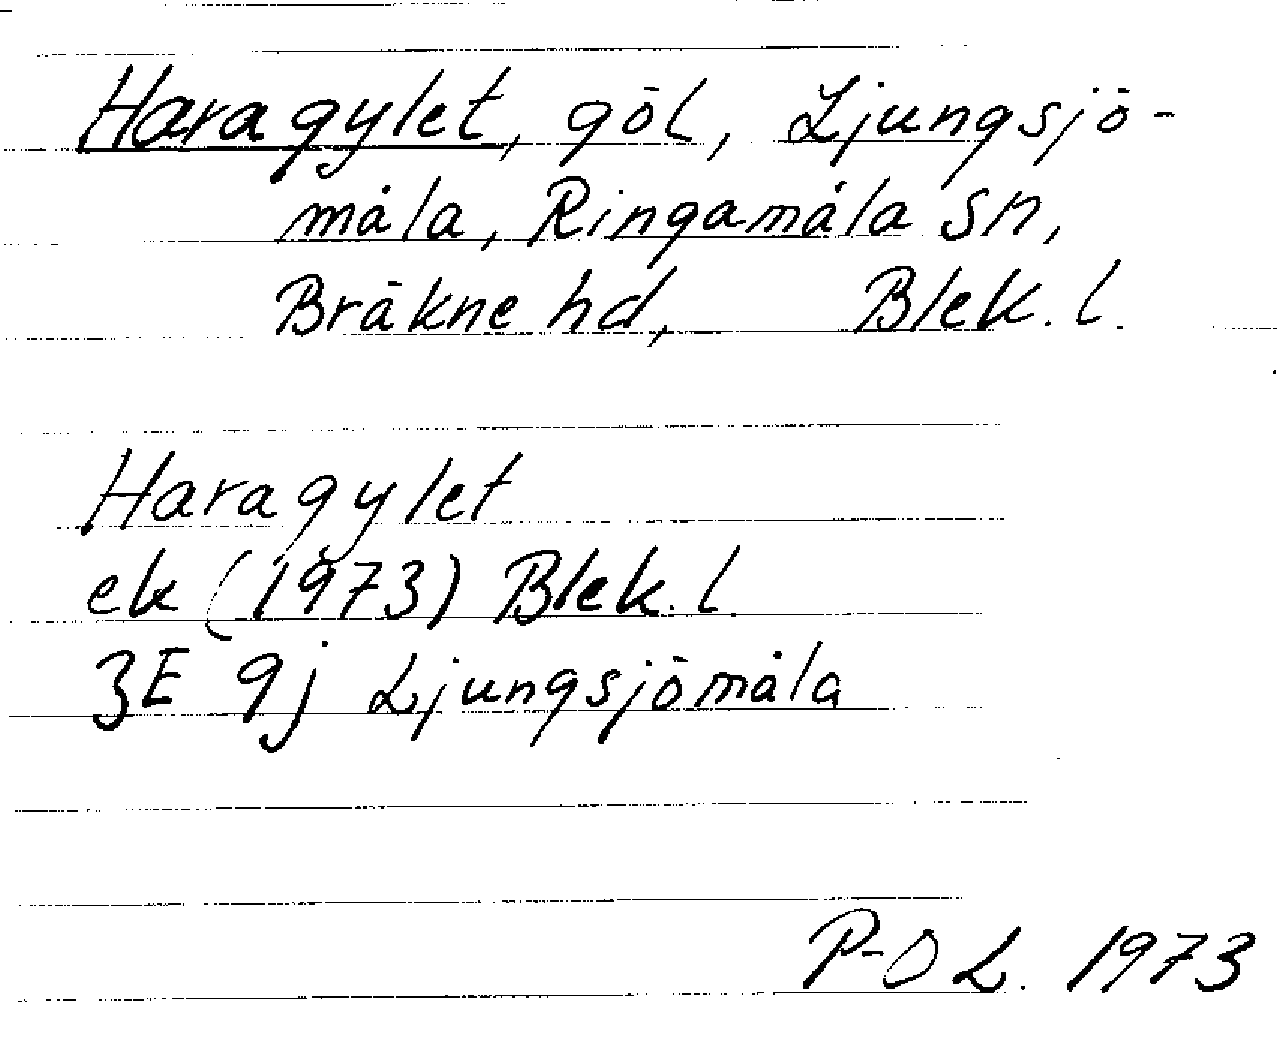 Haragylet, göl, Ljungsjö-
måla, Ringamåla sn,
Bräkne hd, Blek. l.
Haragylet
ek (1973) Blek. l.
3E 9j Ljungsjömåla
P-O L. 1973